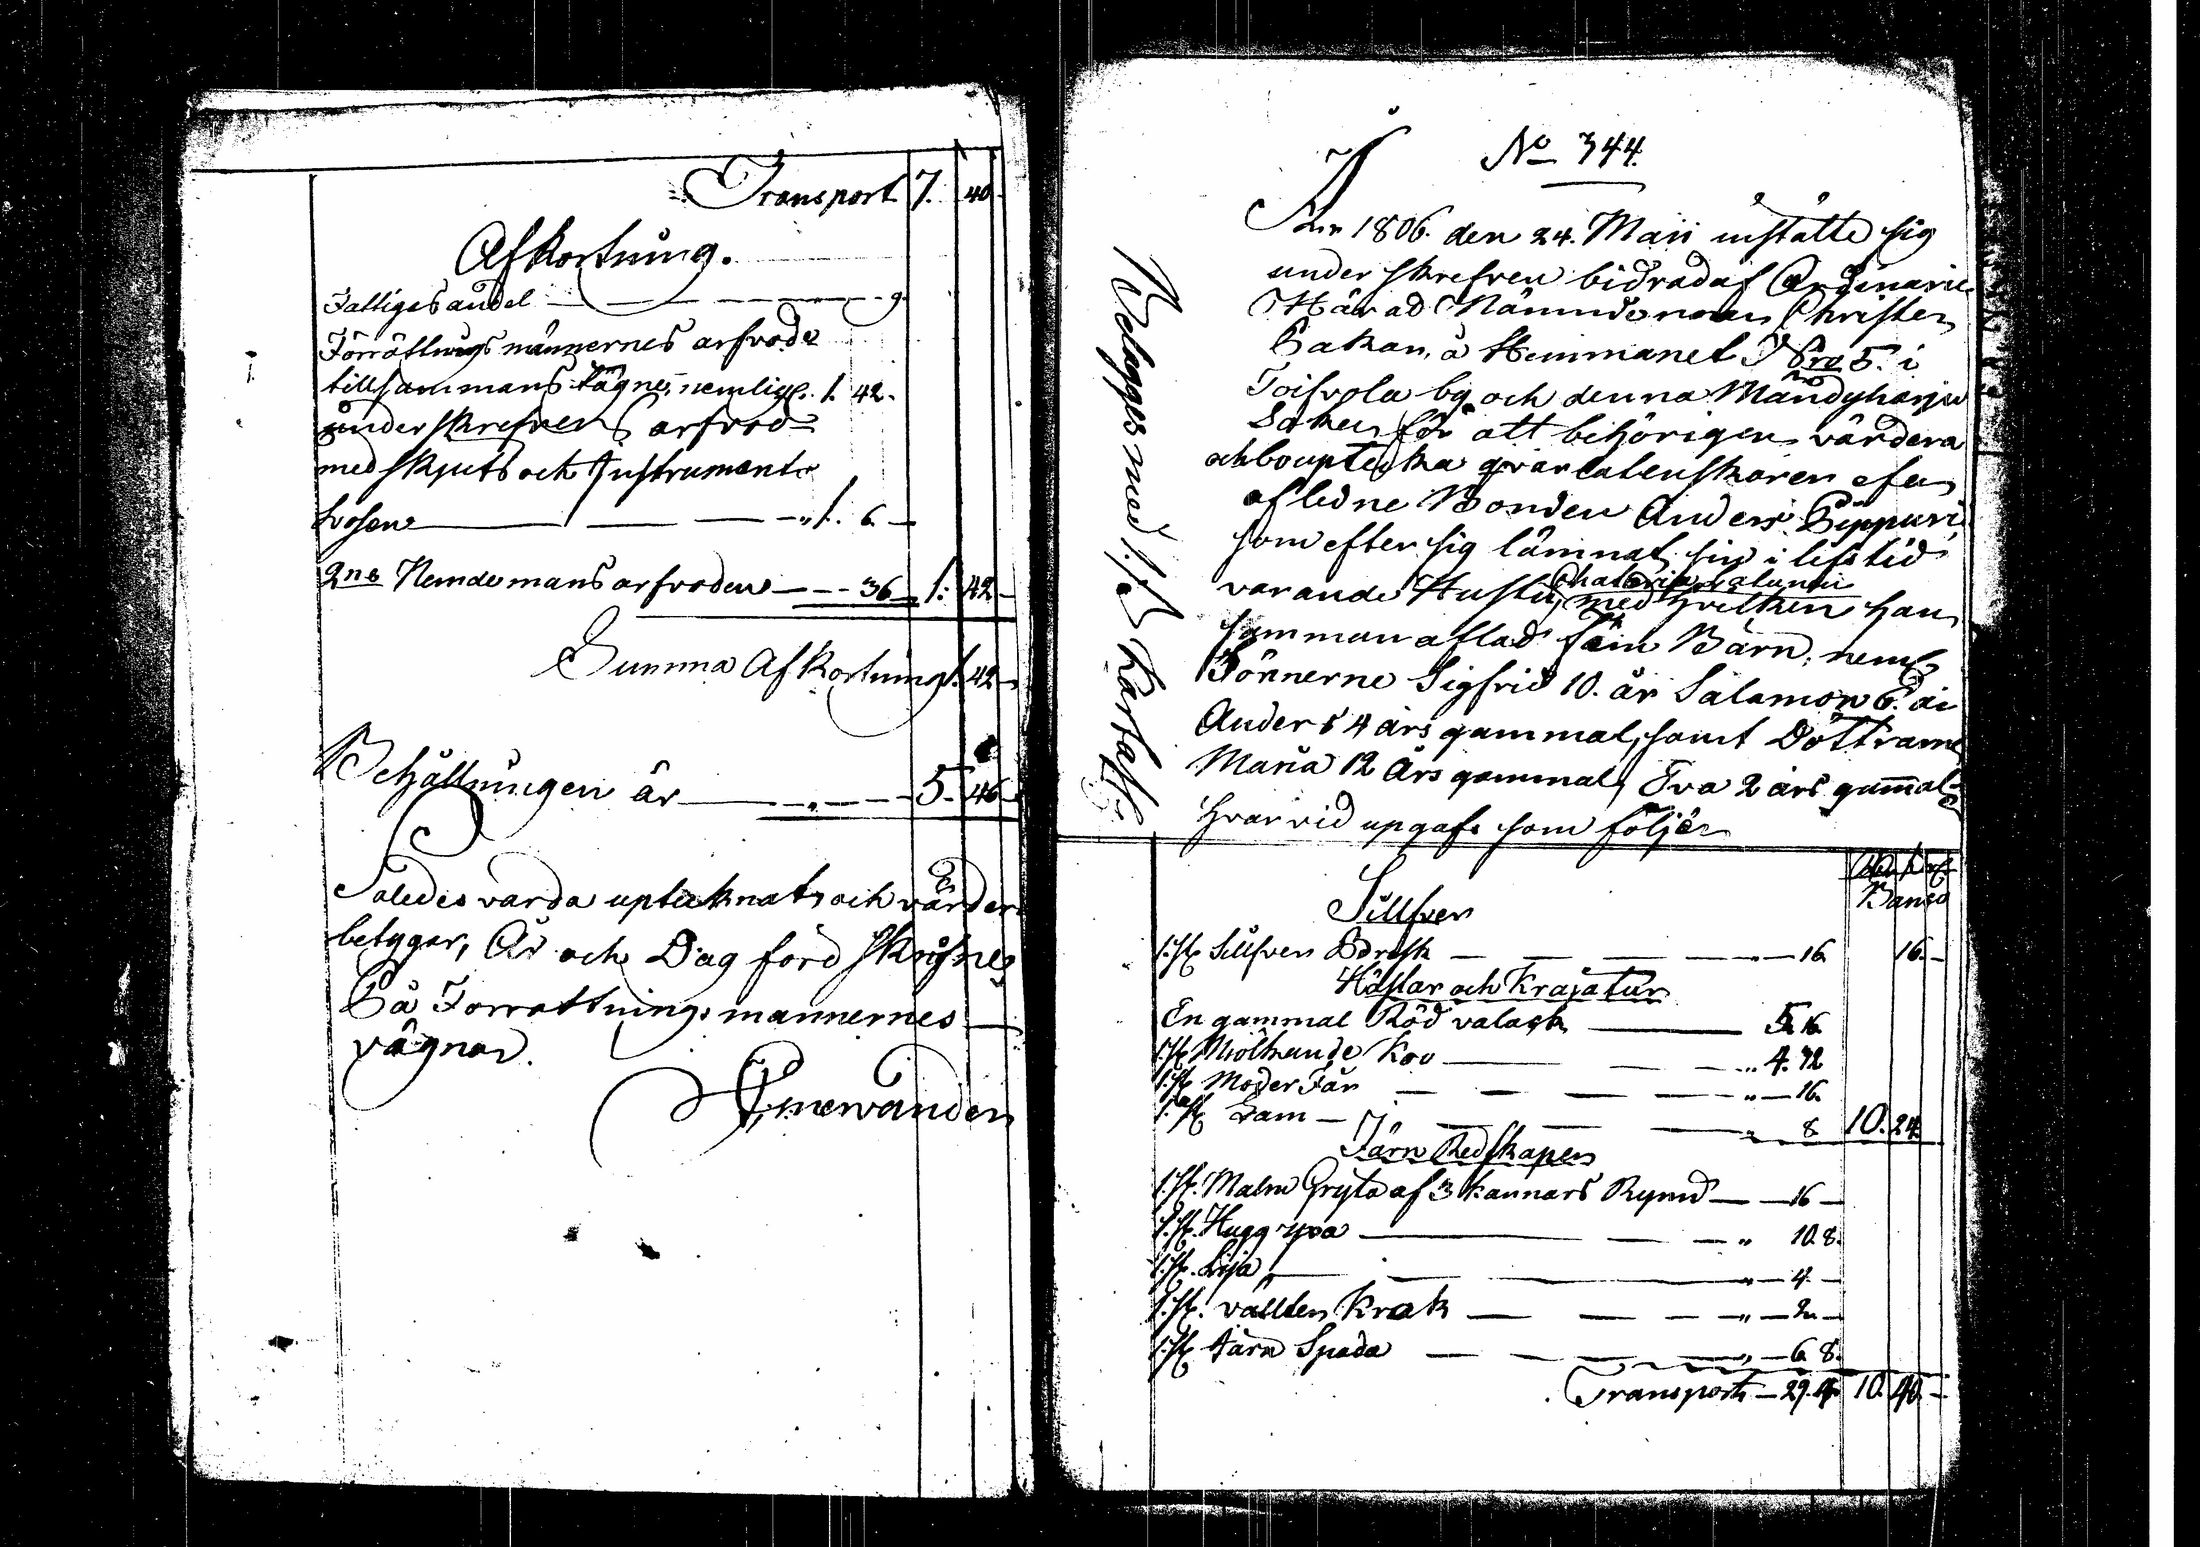 Transport 7. 40.
Afkortning.
Fattiges andel — 9.
Förrättnings männernes arfvode
tillsammans tagne, nemlig. 1. 42.
underskrefvens arfvod
med skjuts och Instruments
losen — „ 1. 6. —
2ne Nemdemans arfvoden — 36 — 1: 42 —
Summa Afkortning 1. 42 —
Behållningen är — 5. 46 —
Således varda uptecknat och värder
betygar, År och Dag förd skrifne
På Förrättnings männernes —
vägnar.
No 344.
År 1806. den 24. Maii instälte sig
underskrefven bidrad af Ordinarie
Härads Nämndeman Christer
Pakan, å Hemmanet No 5. i
Toifvola by och denna Mändyharju
Soken för att behörigen värdera
och bouptekna qvarlatenskapen efter
afledne Bonden Anders Pippuri
som efter sig lämnat sin i lifstid
varande Hustru, Chatarina
med hvilken han
samman aflad fäm Barn, neml
Sönnerne Sigfrid 10. år Salamon 6. år
Anders 4 års gammal, samt Döttrarne
Maria 12 års gammal, Eva 2 års gammal
hvarvid upgafs som följer
Belägges med 1 s. B Karta
Banco
Sillfver
1. st. Sillfver Brisk — „ — 16. 16. —
Hästar och Kräjatur
En gammal Röd valack — 5. 16.
1. st. Miölkande Koo — „ 4. 32
1. st. Moder Får — „ — 16.
1. st. Lam — „ 8 10. 24
Järn Redskaper
1. st. Malm Gryta af 3 kannars Rymd — — 16 —
1. st. Hugg yxa — „ 10. 8.
1. st. Lija — „ — 4. —
1. st. vällten Krok — „ — 2. —
1. st. Järn Spada — „ — 6. 8.
Transport — 29. 4. 10. 40. —